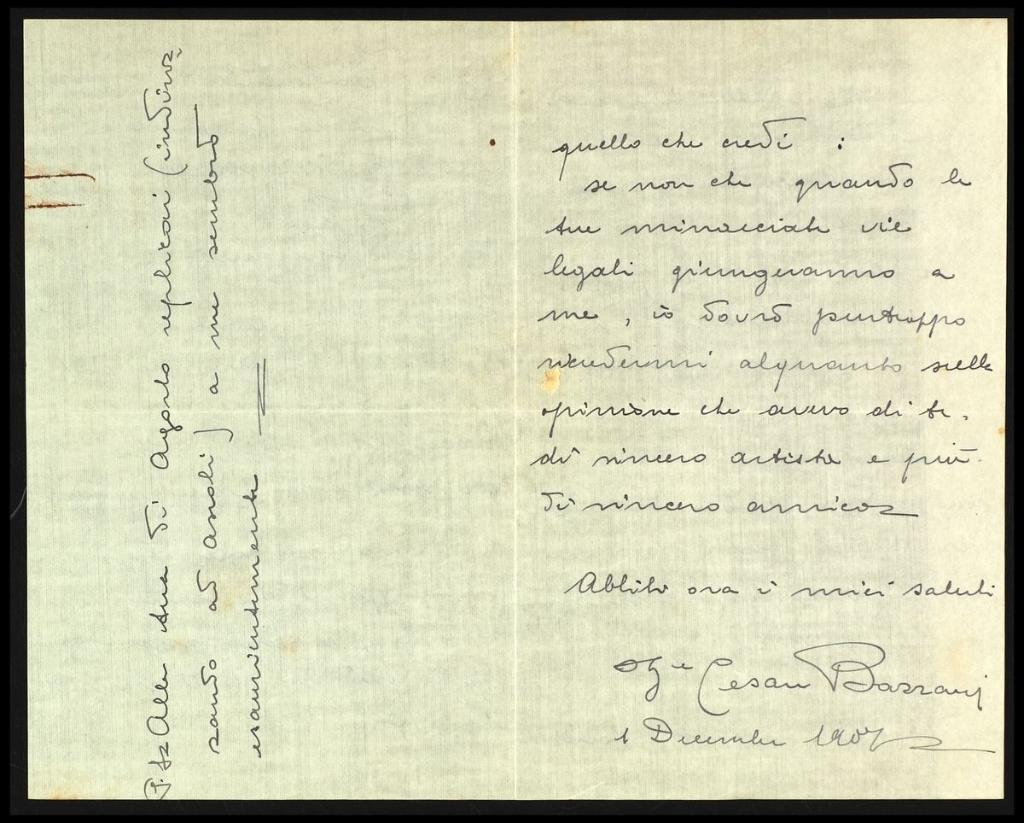 quello che credi :
se non che quando le
tue minacciate vie
legali giungeranno a
me, io dovrò purtroppo
ricredermi alquanto sulla
opinione che avevo di te,
di sincero artista e più
di sincero amico
Abbiti ora i miei saluti
Cesare Bazzani
1 Decembre 1907
P.S. Alla tua di Agosto replicai (indiriz-
zando ad Ascoli) a me sembrò
esaurientemente